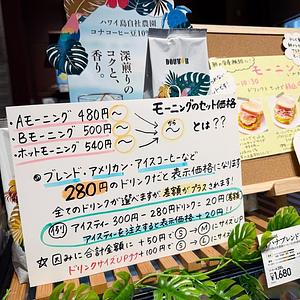 ハワイ島自社農園
コナコーヒー豆10%
深煎りの
コクと、
香り。
DOUTOR
モーニング
・Aモーニング 480円〜
・Bモーニング 500円〜
・ホットモーニング 540円〜
モーニングのセット価格
とは??
・ブレンド・アメリカン・アイスコーヒーなど
280円のドリンクだと表示価格になります
全てのドリンクが選べますが差額がプラスされます!
例 アイスティー 300円-280円ドリンク:20円(差額)
アイスティーを注文すると表示価格+20円!!
☆因みに合計金額に+50円でⓈ→ⓂにサイズUP
ドリンクサイズUP +100円でⓈ→ⓁにサイズUP
¥1,680